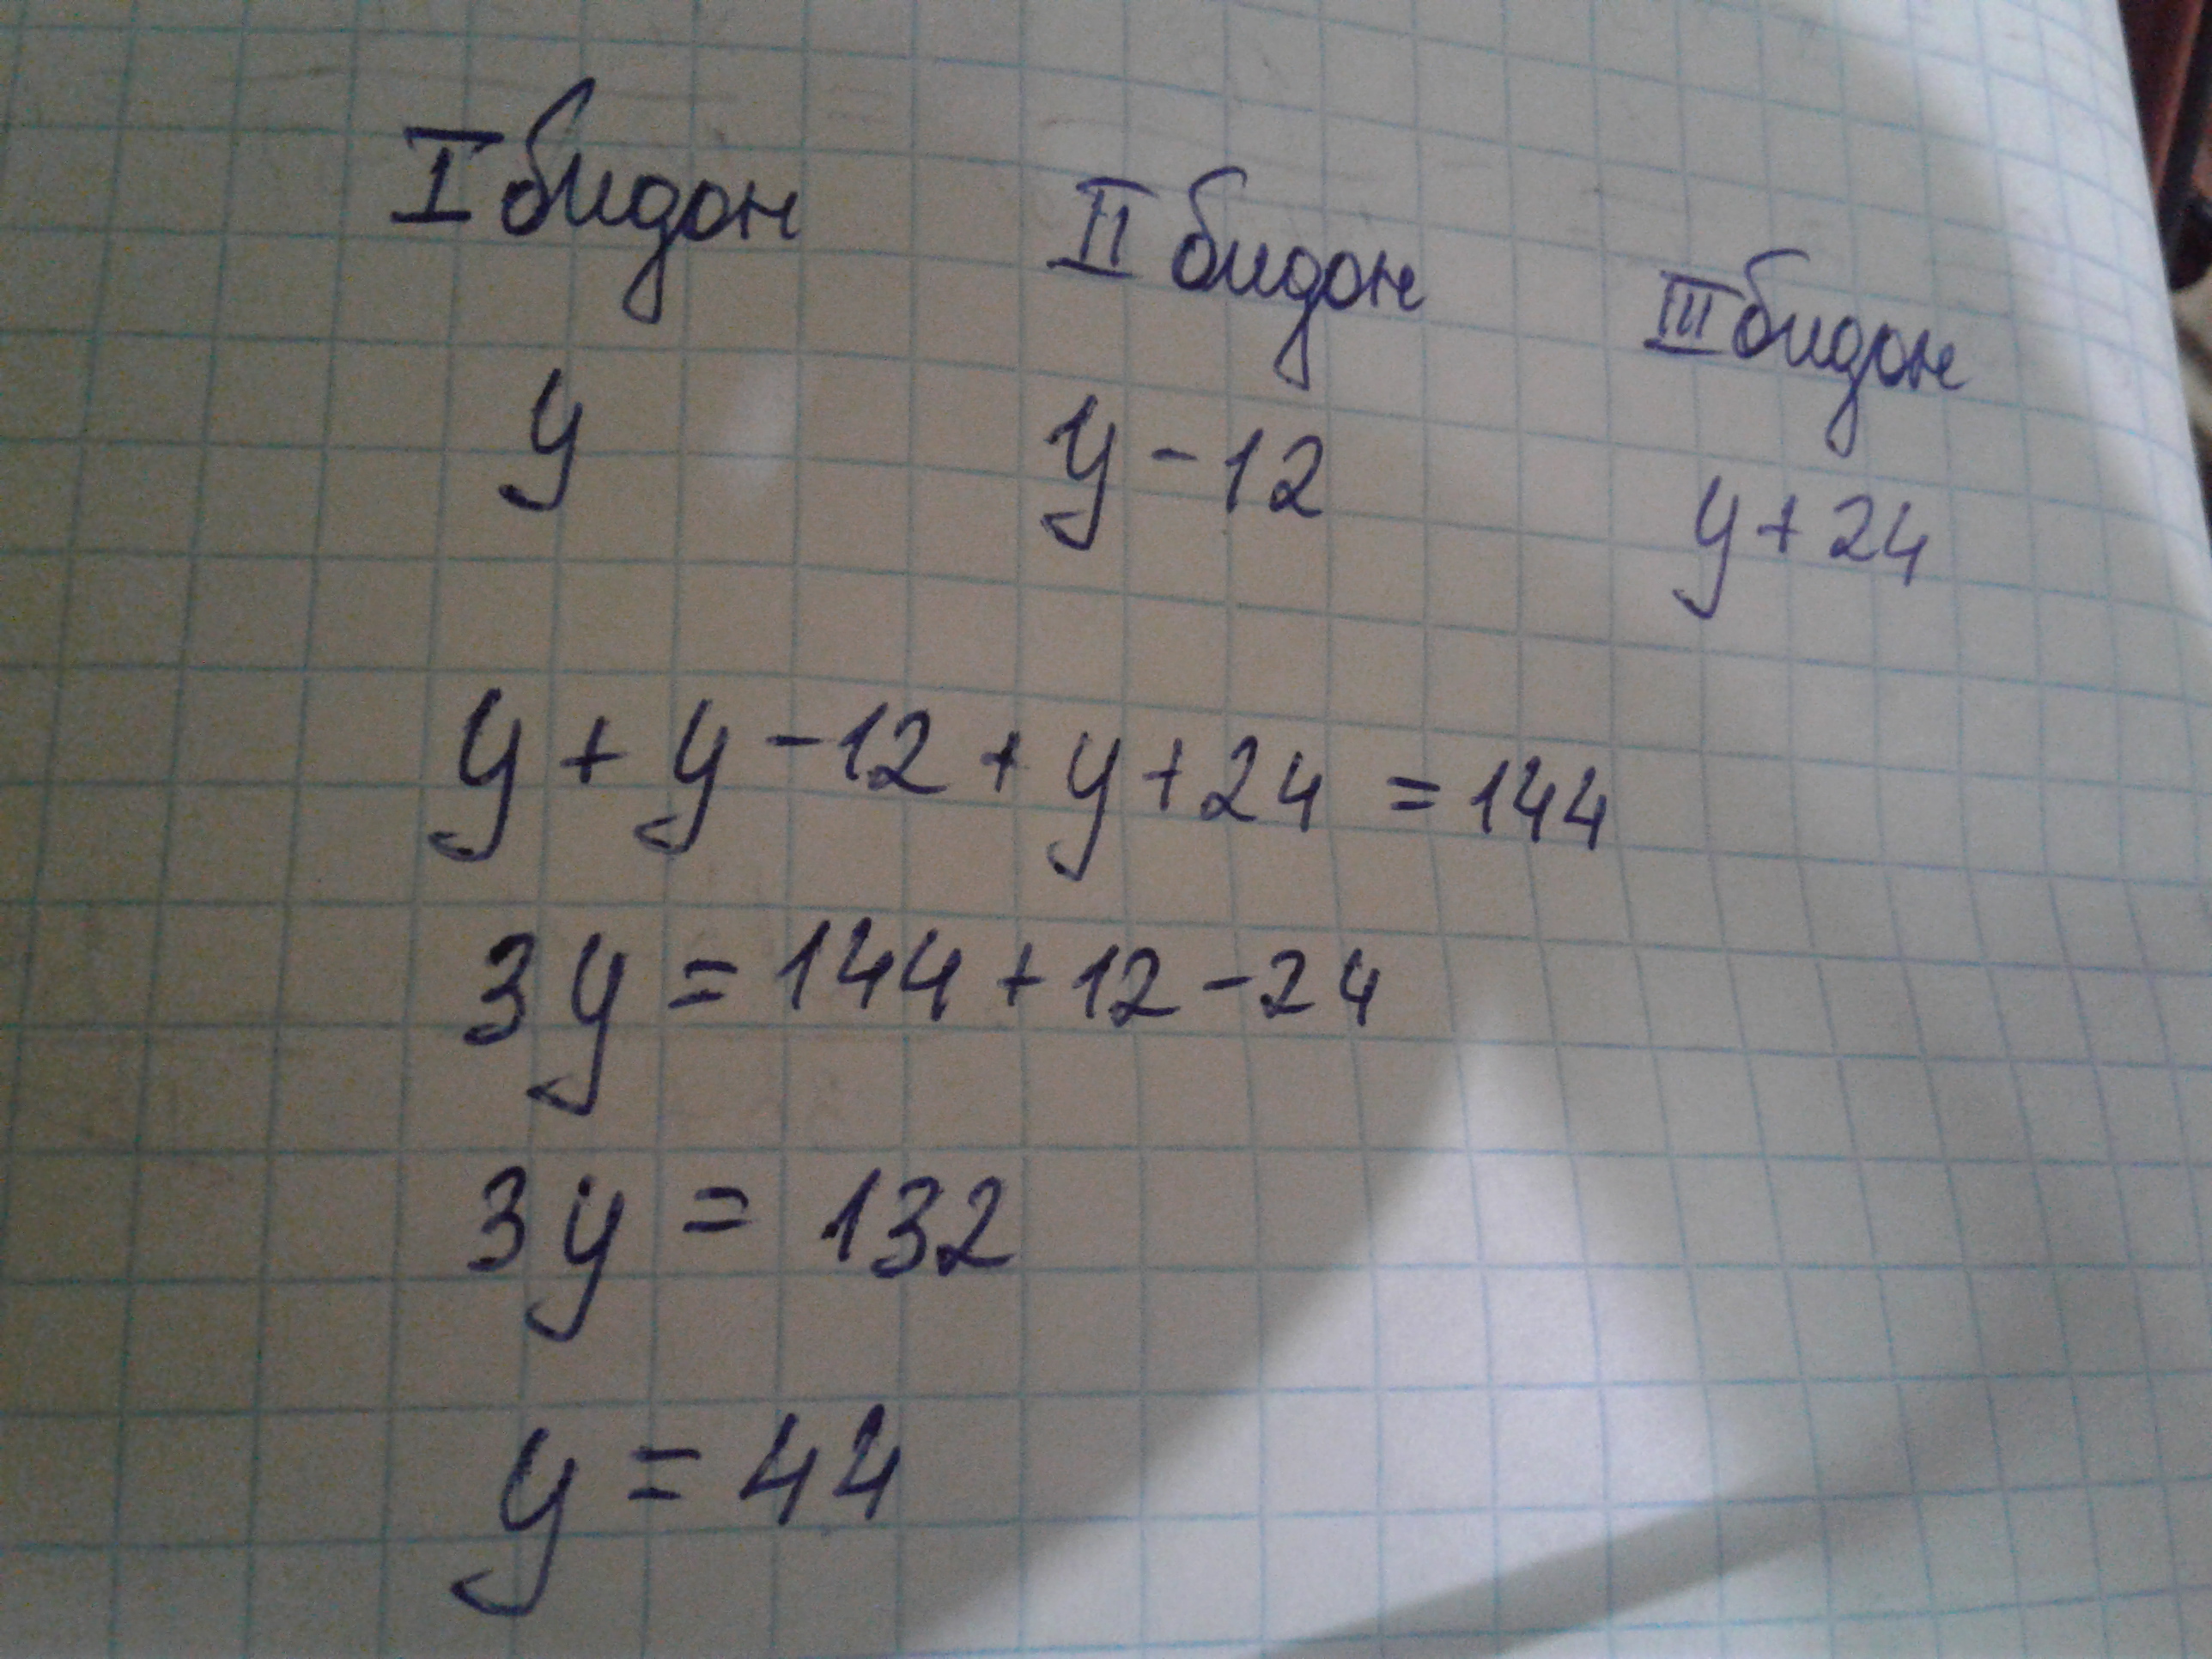 I бидон II бидон III бидон
у у - 12 у + 24
у + у - 12 + у + 24 = 144
3у = 144 + 12 - 24
3у = 132
у = 44